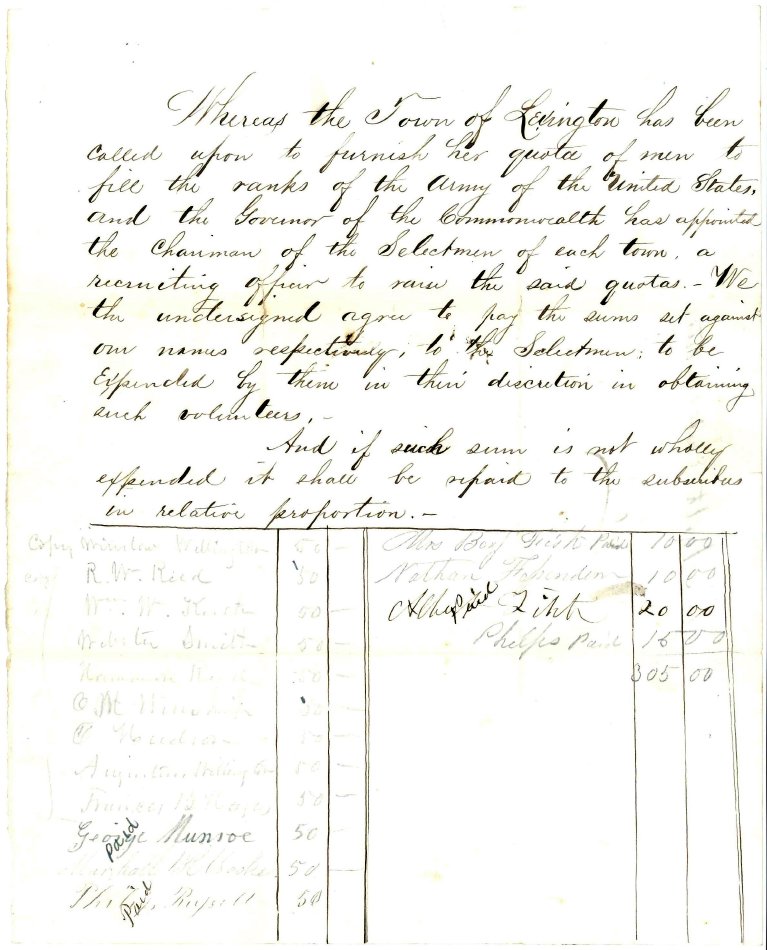 Whereas the Town of Lexington has been
called upon to furnish her quota of men to
fill the ranks of the Army of the United States,
and the Governor of the Commonwealth has appointed
the Chairman of the Selectmen of each town, a
recruiting officer to raise the said quotas. – We
the undersigned agree to pay the sums set against
our names respectively, to the Selectmen; to be
Expended by them in their discretion in obtaining
such volunteers. –
And if such sum is not wholly
expended it shall be repaid to the subscribers
in relative proportion. –
Copy Winslow Wellington 50 –
R. W. Reed 50
Wm. W. 50 –
Webster Smith 50 –
50 –
O M 50
C Hudson 50 –
Augustus Wellington 50 –
Francis B Hayes 50 –
George Munroe 50 –
Paid
50 –
Russell 50
Paid
Mrs Paid 10 00
Nathan Fessenden 10 00
Paid 20 00
Phelps Paid 15 00
305 00